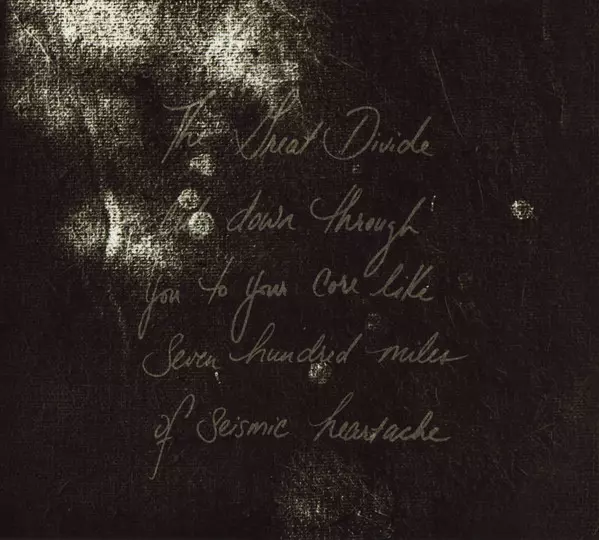 The Great Divide
cut down through
you to your core like
seven hundred miles
of seismic heartache